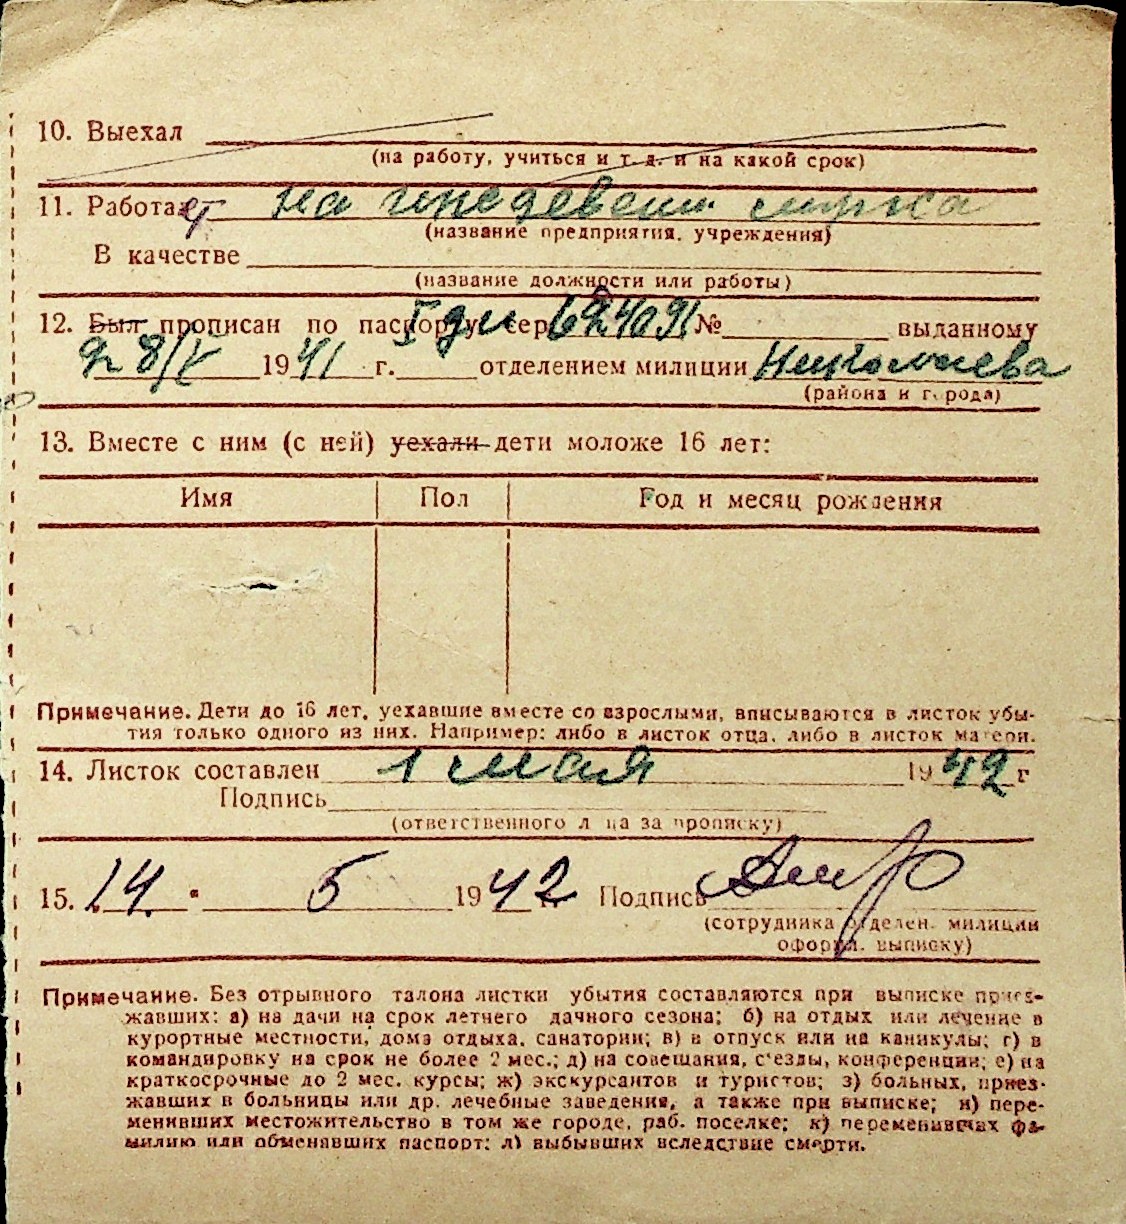 10. Выехал
(на работу, учиться и т. д. и на какой срок)
11. Работает на
(название предприятия, учреждения)
В качестве
(название должности или работы)
12. Был прописан по паспорту сер 624091 № выданному
28/V 1941 г. отделением милиции Николаева
(района и города)
13. Вместе с ним (с ней) уехали дети моложе 16 лет:
Имя Пол Год и месяц рождения
Примечание. Дети до 16 лет, уехавшие вместе со взрослыми, вписываются в листок убы-
тия только одного из них. Например: либо в листок отца, либо в листок матери.
14. Листок составлен 1 мая 1942 г
Подпись
(ответственного лица за прописку)
15. 14 " 5 1942 г. Подпись
(сотрудника отделен. милиции
оформ. выписку)
Примечание. Без отрывного талона листки убытия составляются при выписке приез-
жавших: а) на дачи на срок летнего дачного сезона; б) на отдых или лечение в
курортные местности, дома отдыха, санатории; в) в отпуск или на каникулы; г) в
командировку на срок не более 2 мес.; д) на совещания, с'езды, конференции; е) на
краткосрочные до 2 мес. курсы; ж) экскурсантов и туристов; з) больных, приез-
жавших в больницы или др. лечебные заведения, а также при выписке; и) пере-
менивших местожительство в том же городе, раб. поселке; к) переменивших фа-
милию или обменявших паспорт; л) выбывших вследствие смерти.